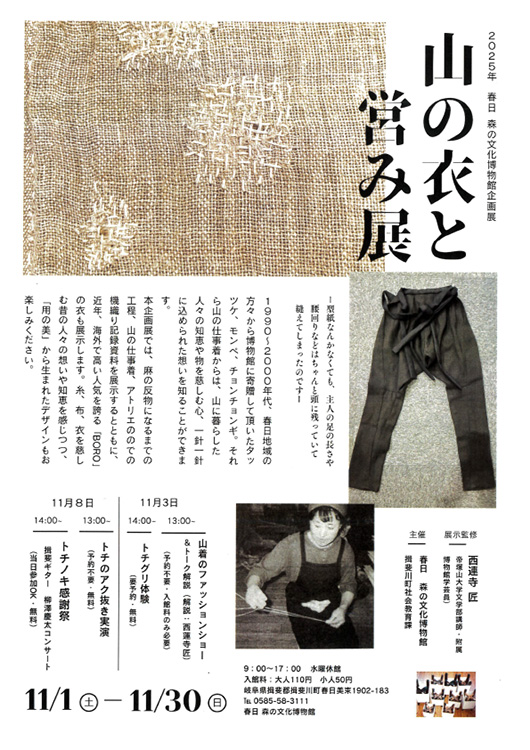 2025年 春日 森の文化博物館企画展
山の衣と
営み展
ー型紙なんかなくても、主人の足の長さや
腰回りなどはちゃんと頭に残っていて
縫えてしまったのですー
1990〜2000年代、春日地域の
方々から博物館に寄贈して頂いたタッ
ツケ、モンペ、チョンチョンギ。それ
ら山の仕事着からは、山に暮らした
人々の知恵や物を慈しむ心、一針一針
に込められた想いを知ることができま
す。
本企画展では、麻の反物になるまでの
工程、山の仕事着、アトリエののでの
機織り記録資料を展示するとともに、
近年、海外で高い人気を誇る「BORO」
の衣も展示します。糸、布、衣を慈し
む昔の人々の想いや知恵を感じつつ、
「用の美」から生まれたデザインもお
楽しみください。
展示監修
西連寺 匠
帝塚山大学文学部講師・附属
博物館学芸員
主催
春日 森の文化博物館
揖斐川町社会教育課
11月3日
13:00~
山着のファッションショー
&トーク解説(解説:西連寺匠)
(予約不要・入館料のみ必要)
14:00~
トチグリ体験
(要予約・無料)
11月8日
13:00~
トチのアク抜き実演
(予約不要・無料)
14:00~
トチノキ感謝祭
揖斐ギター 柳澤慶太コンサート
(当日参加OK・無料)
11/1 土 — 11/30 日
9:00〜17:00 水曜休館
入館料:大人110円 小人50円
岐阜県揖斐郡揖斐川町春日美束1902-183
℡ 0585-58-3111
春日 森の文化博物館